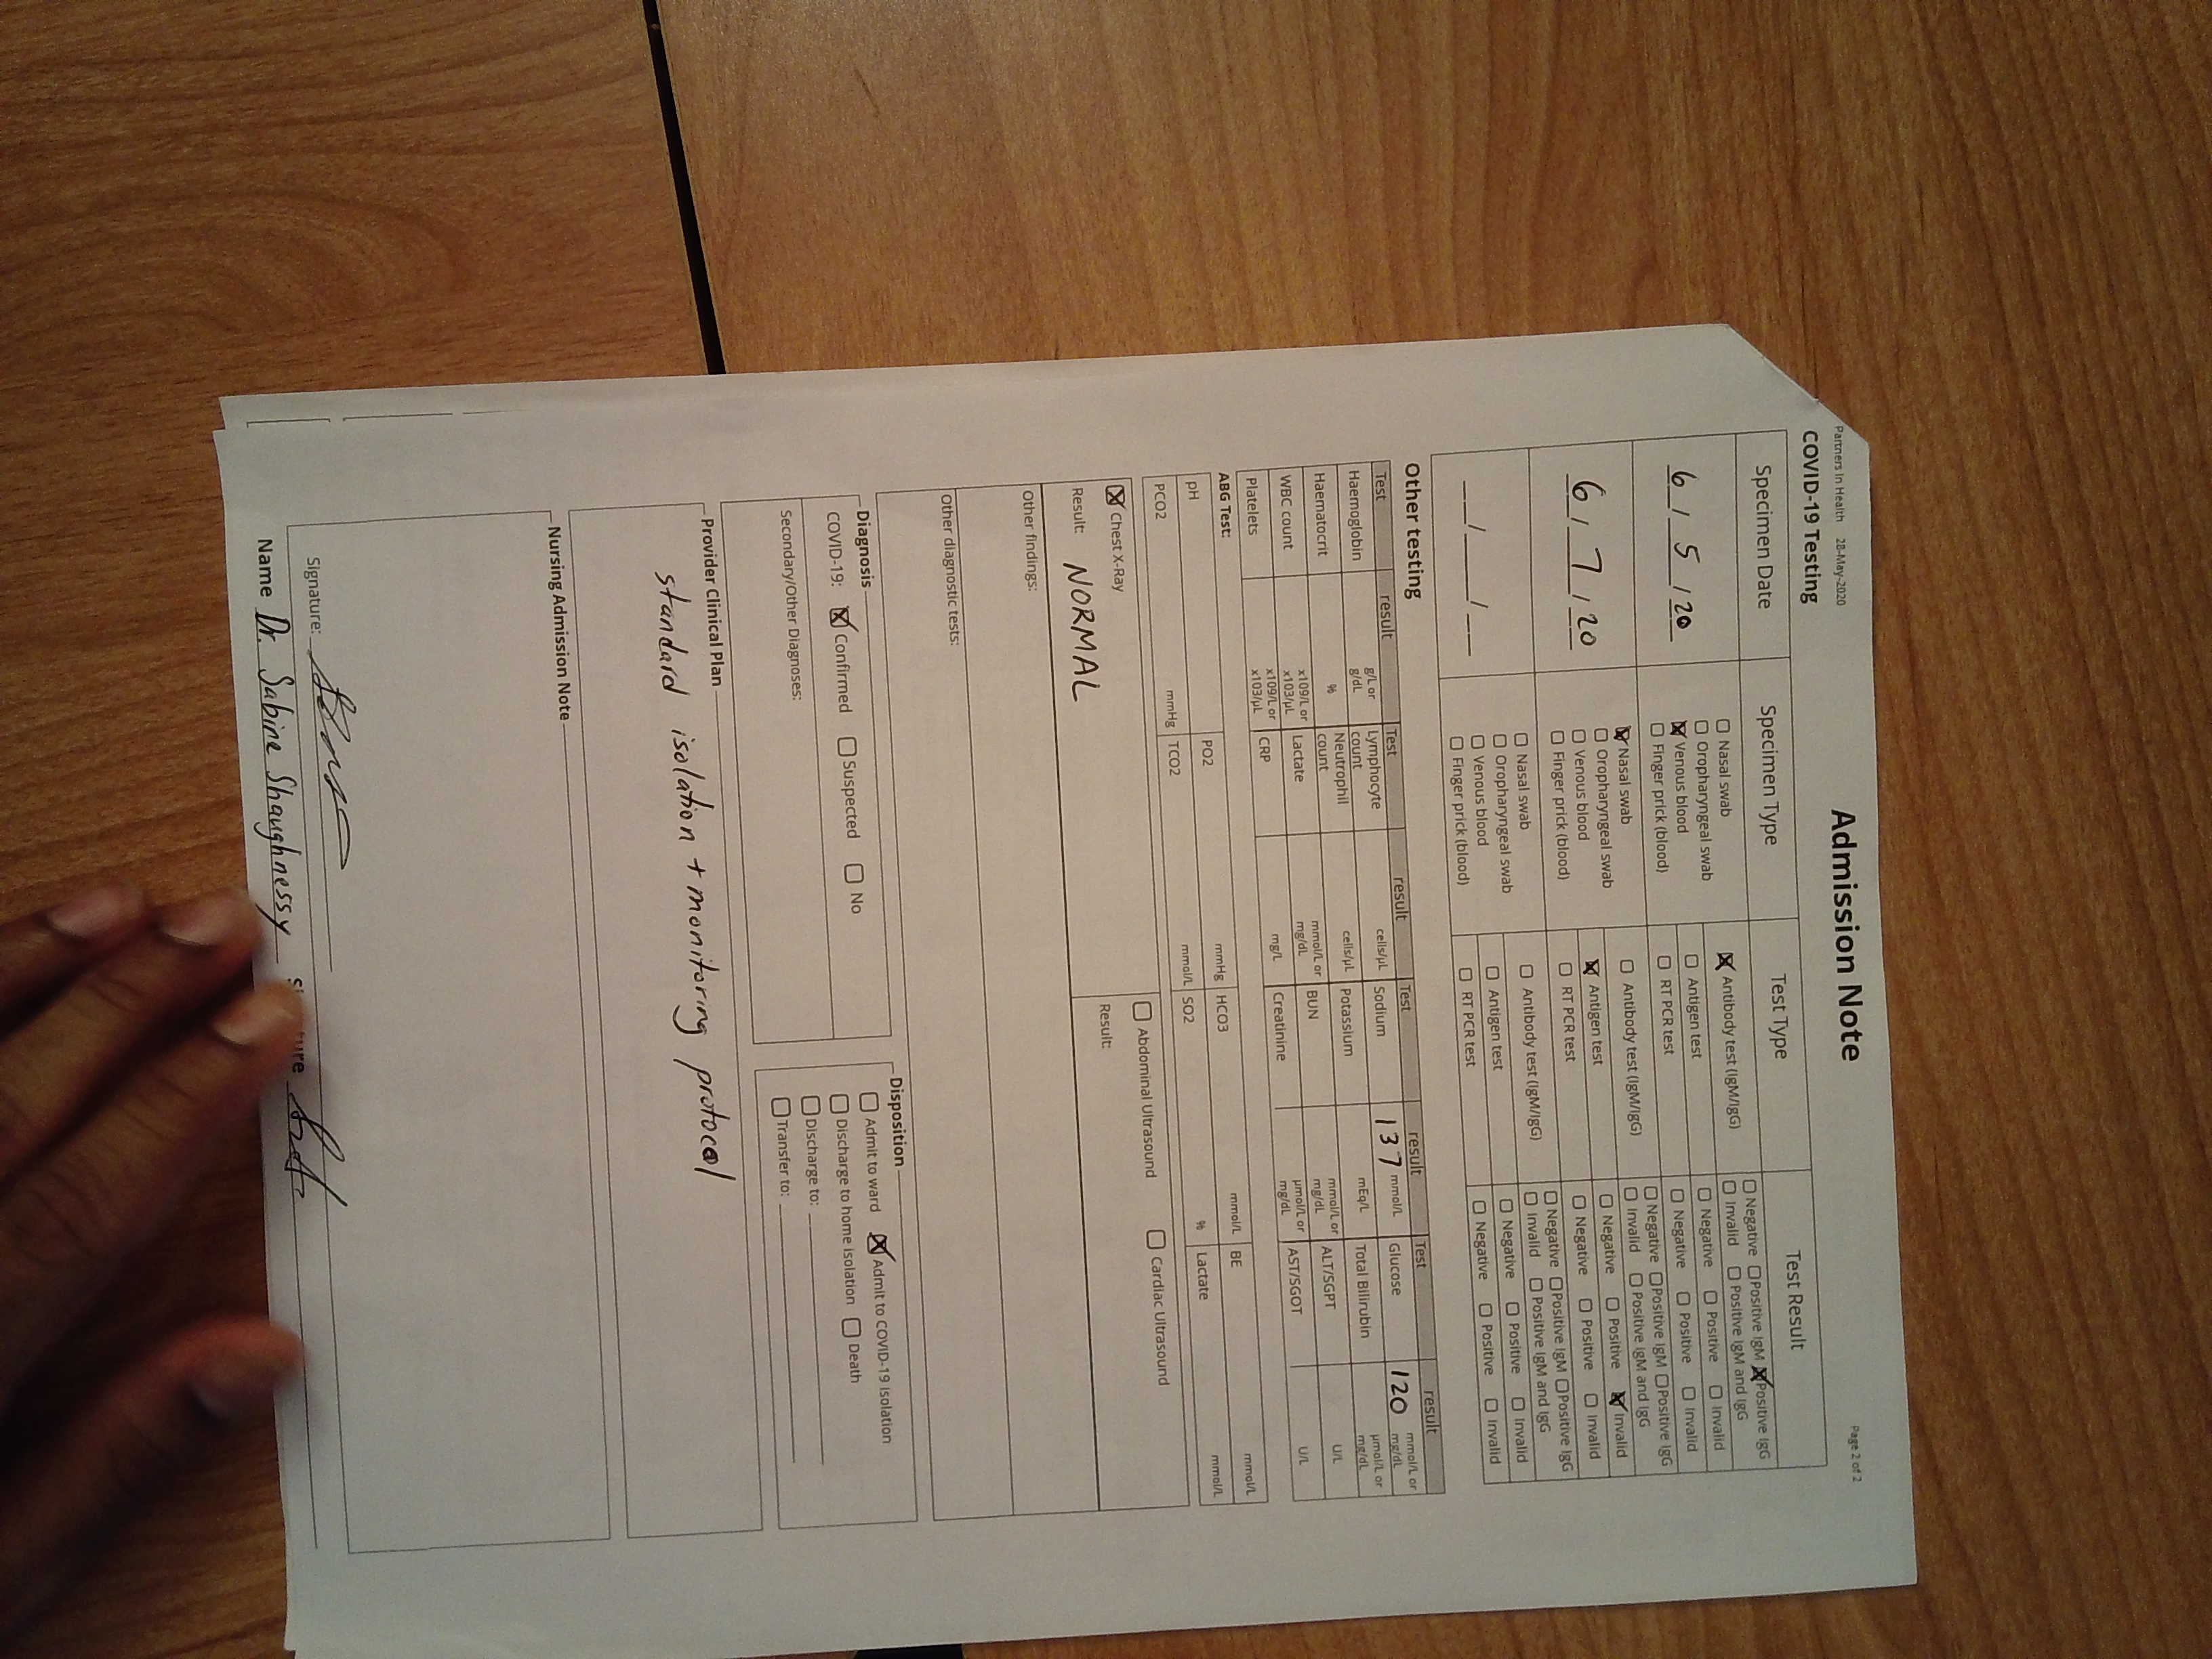 Partners In Health 28-May-2020
Page 2 of 2
Admission Note
COVID-19 Testing
Specimen Date Specimen Type Test Type Test Result
6 / 5 / 20
☐ Nasal swab
☐ Oropharyngeal swab
☒ Venous blood
☐ Finger prick (blood)
☒ Antibody test (IgM/IgG)
☐ Negative ☐ Positive IgM ☒ Positive IgG
☐ Invalid ☐ Positive IgM and IgG
☐ Antigen test ☐ Negative ☐ Positive ☐ Invalid
☐ RT PCR test ☐ Negative ☐ Positive ☐ Invalid
6 / 7 / 20
☒ Nasal swab
☐ Oropharyngeal swab
☐ Venous blood
☐ Finger prick (blood)
☐ Antibody test (IgM/IgG)
☐ Negative ☐ Positive IgM ☐ Positive IgG
☐ Invalid ☐ Positive IgM and IgG
☒ Antigen test ☐ Negative ☐ Positive ☒ Invalid
☐ RT PCR test ☐ Negative ☐ Positive ☐ Invalid
__/__/__
☐ Nasal swab
☐ Oropharyngeal swab
☐ Venous blood
☐ Finger prick (blood)
☐ Antibody test (IgM/IgG)
☐ Negative ☐ Positive IgM ☐ Positive IgG
☐ Invalid ☐ Positive IgM and IgG
☐ Antigen test ☐ Negative ☐ Positive ☐ Invalid
☐ RT PCR test ☐ Negative ☐ Positive ☐ Invalid
Other testing
Test result Test result Test result Test result
Haemoglobin g/L or g/dL Lymphocyte count cells/µL Sodium 137 mmol/L Glucose 120 mmol/L or mg/dL
Haematocrit % Neutrophil count cells/µL Potassium mEq/L Total Bilirubin µmol/L or mg/dL
WBC count x109/L or x103/µL Lactate mmol/L or mg/dL BUN mmol/L or mg/dL ALT/SGPT U/L
Platelets x109/L or x103/µL CRP mg/L Creatinine µmol/L or mg/dL AST/SGOT U/L
ABG Test:
pH PO2 mmHg HCO3 mmol/L BE mmol/L
PCO2 mmHg TCO2 mmol/L SO2 % Lactate mmol/L
☒ Chest X-Ray ☐ Abdominal Ultrasound ☐ Cardiac Ultrasound
Result: NORMAL Result:
Other findings:
Other diagnostic tests:
Diagnosis
COVID-19: ☒ Confirmed ☐ Suspected ☐ No
Secondary/Other Diagnoses:
Disposition
☐ Admit to ward ☒ Admit to COVID-19 isolation
☐ Discharge to home isolation ☐ Death
☐ Discharge to:
☐ Transfer to:
Provider Clinical Plan
standard isolation + monitoring protocol
Nursing Admission Note
Signature:
Name Dr. Sabine Shaughnessy